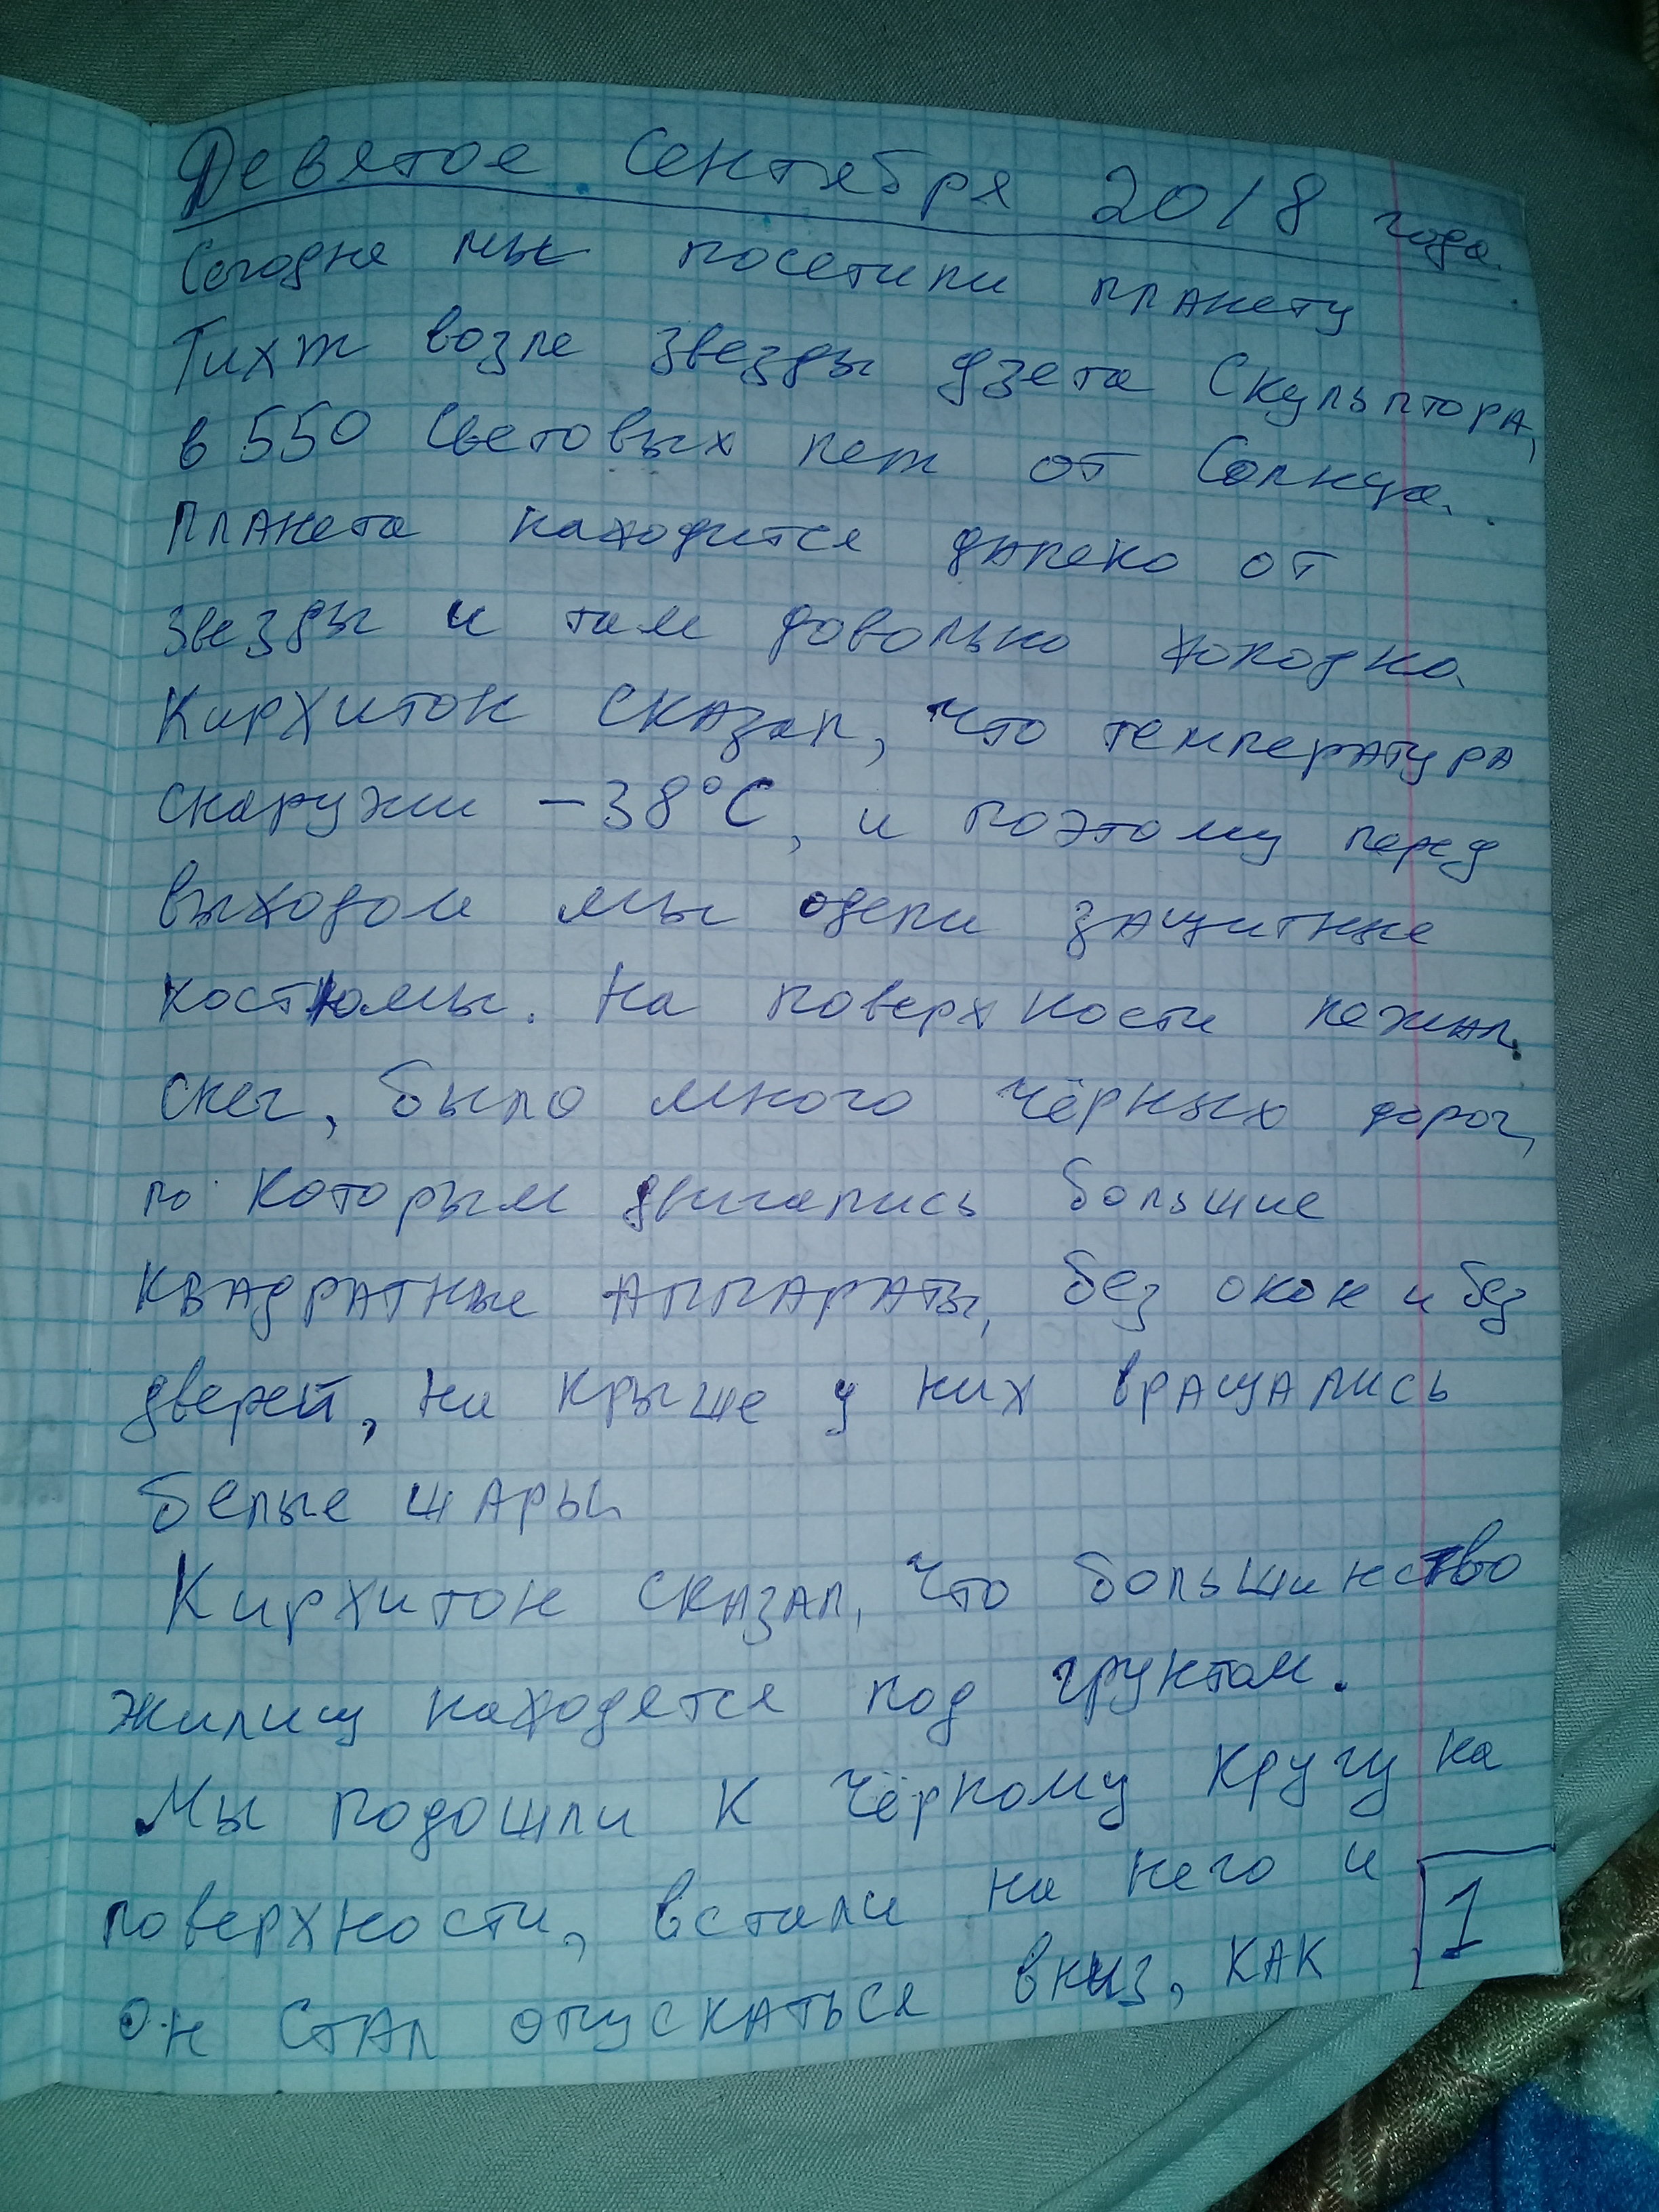 Девятое Сентября 2018 года.
Сегодня мы посетили планету
Тихж возле звезды дзета Скульптора,
в 550 световых лет от Солнца.
Планета находится далеко от
звезды и там довольно холодно.
Кирхитон сказал, что температура
снаружи -38°C, и поэтому перед
выходом мы одели защитные
костюмы. На поверхности лежал
снег, было много чёрных дорог,
по которым двигались большие
квадратные аппараты, без окон и без
дверей, на крыше у них вращались
белые шары.
Кирхитон сказал, что большинство
жилищ находятся под грунтом.
Мы подошли к чёрному кругу на
поверхности, встали на него и
он стал опускаться вниз, как
1